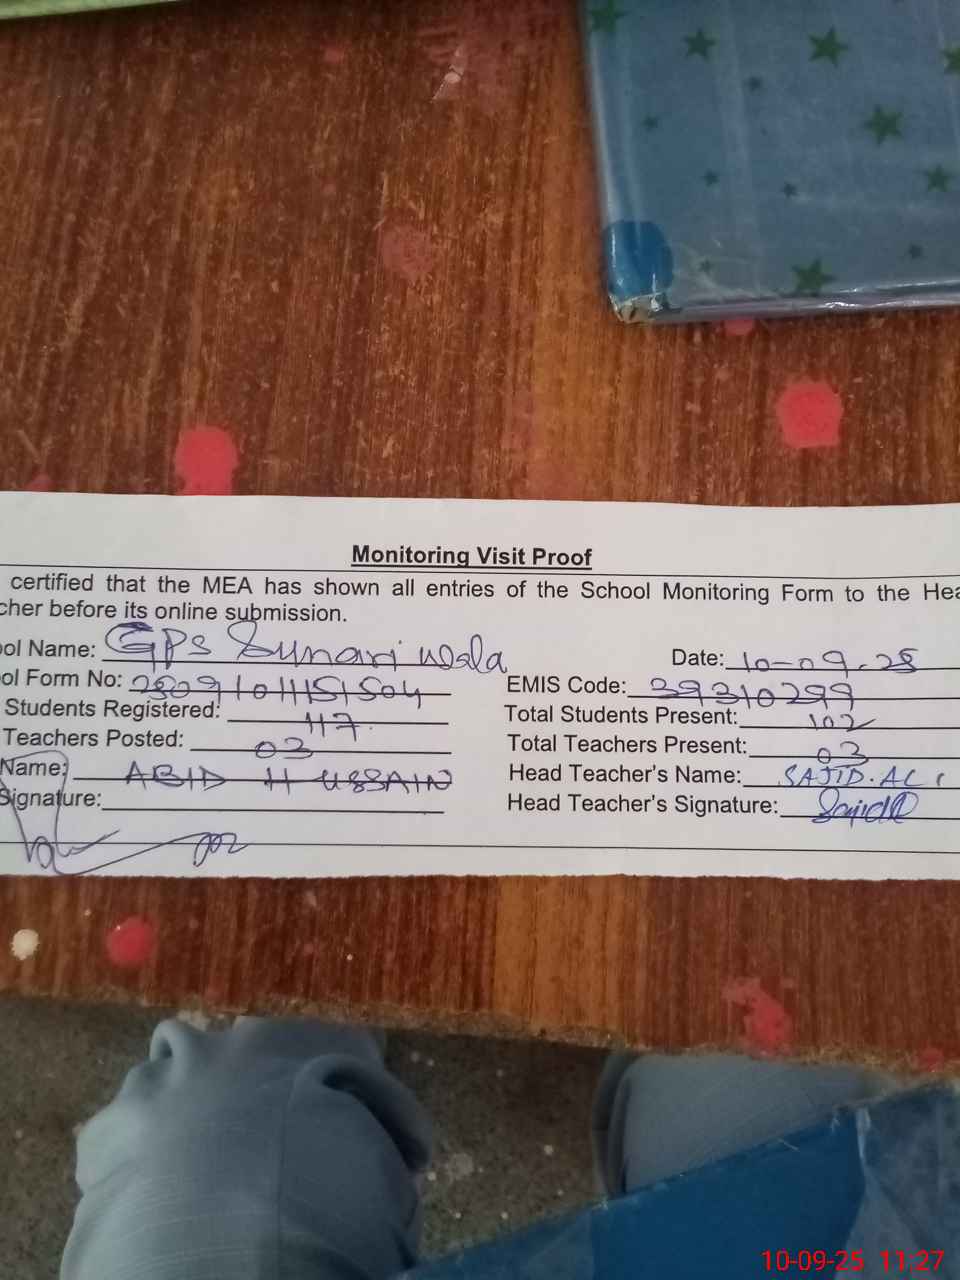 Monitoring Visit Proof
certified that the MEA has shown all entries of the School Monitoring Form to the Hea
cher before its online submission.
ool Name: GPS Sunari wala Date: 10-09.25
ol Form No: EMIS Code: 39310299
Students Registered: 117 Total Students Present: 102
Teachers Posted: 03 Total Teachers Present: 03
Name: ABID HUSSAIN Head Teacher's Name: SAJID.ALI
Signature: Head Teacher's Signature: Sajid
10-09-25 11:27